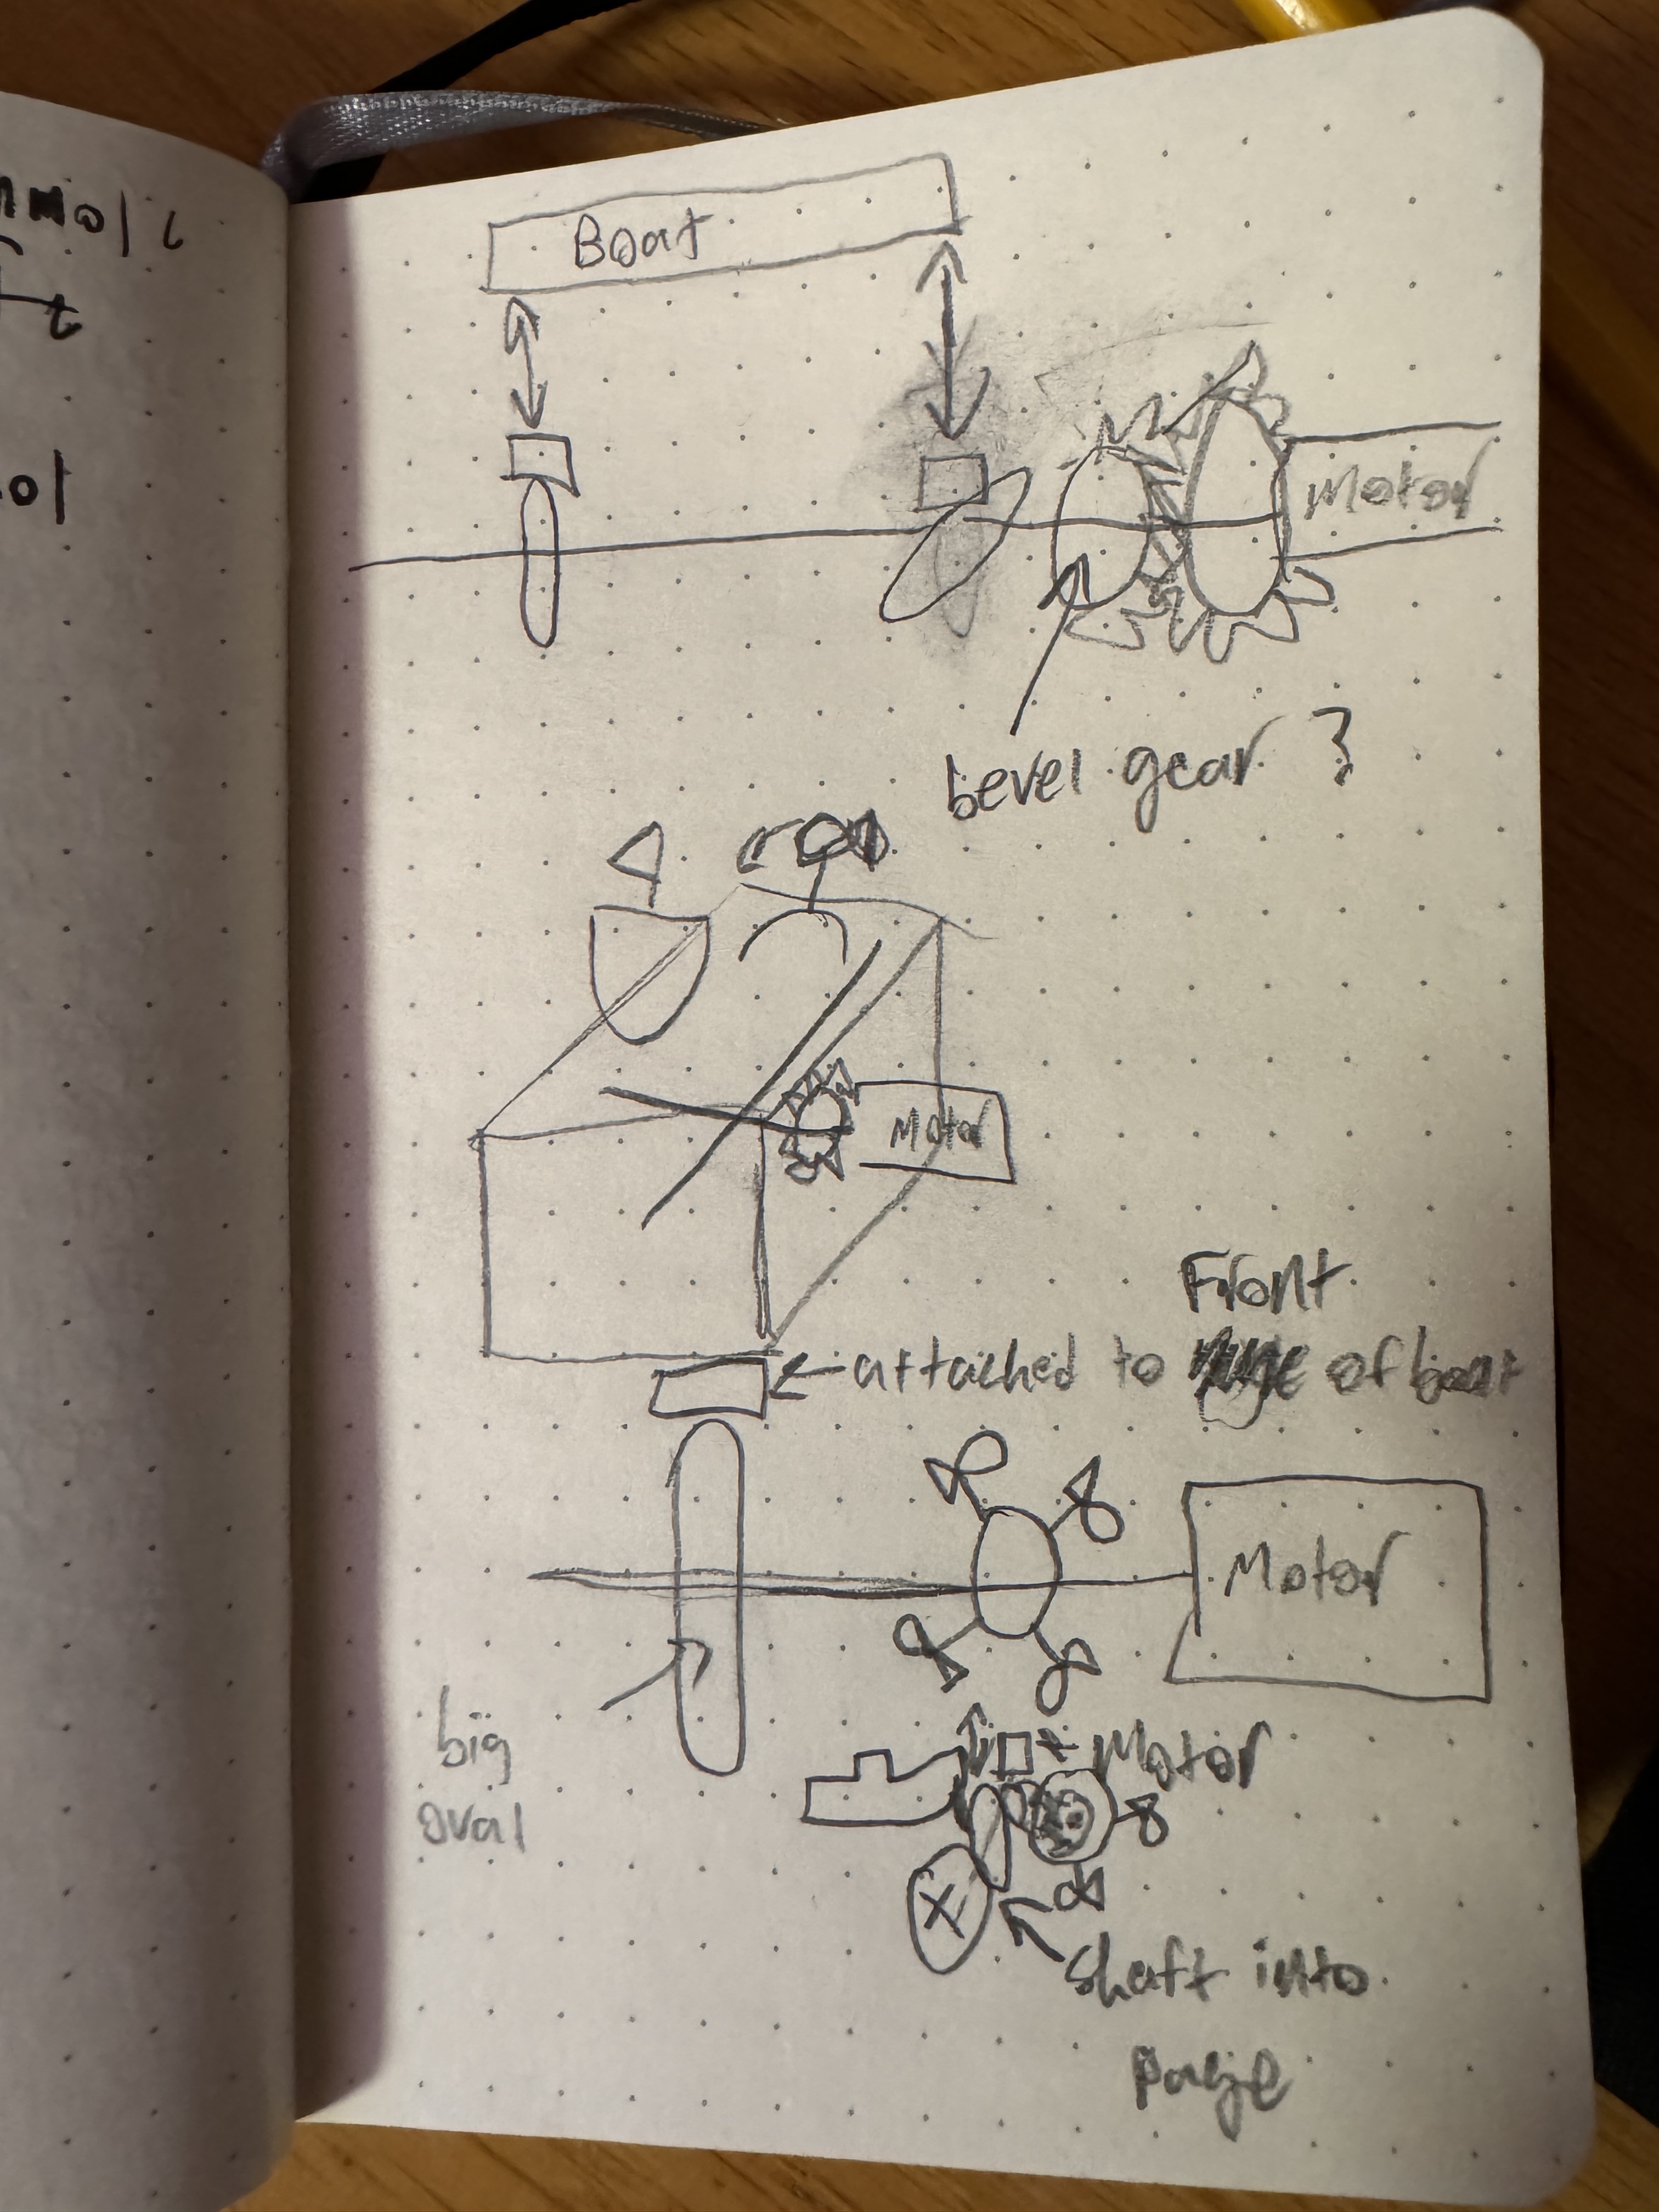 Boat
Motor
bevel gear ?
Motor
Front
attached to of boat
Motor
big
oval
Motor
shaft into
page